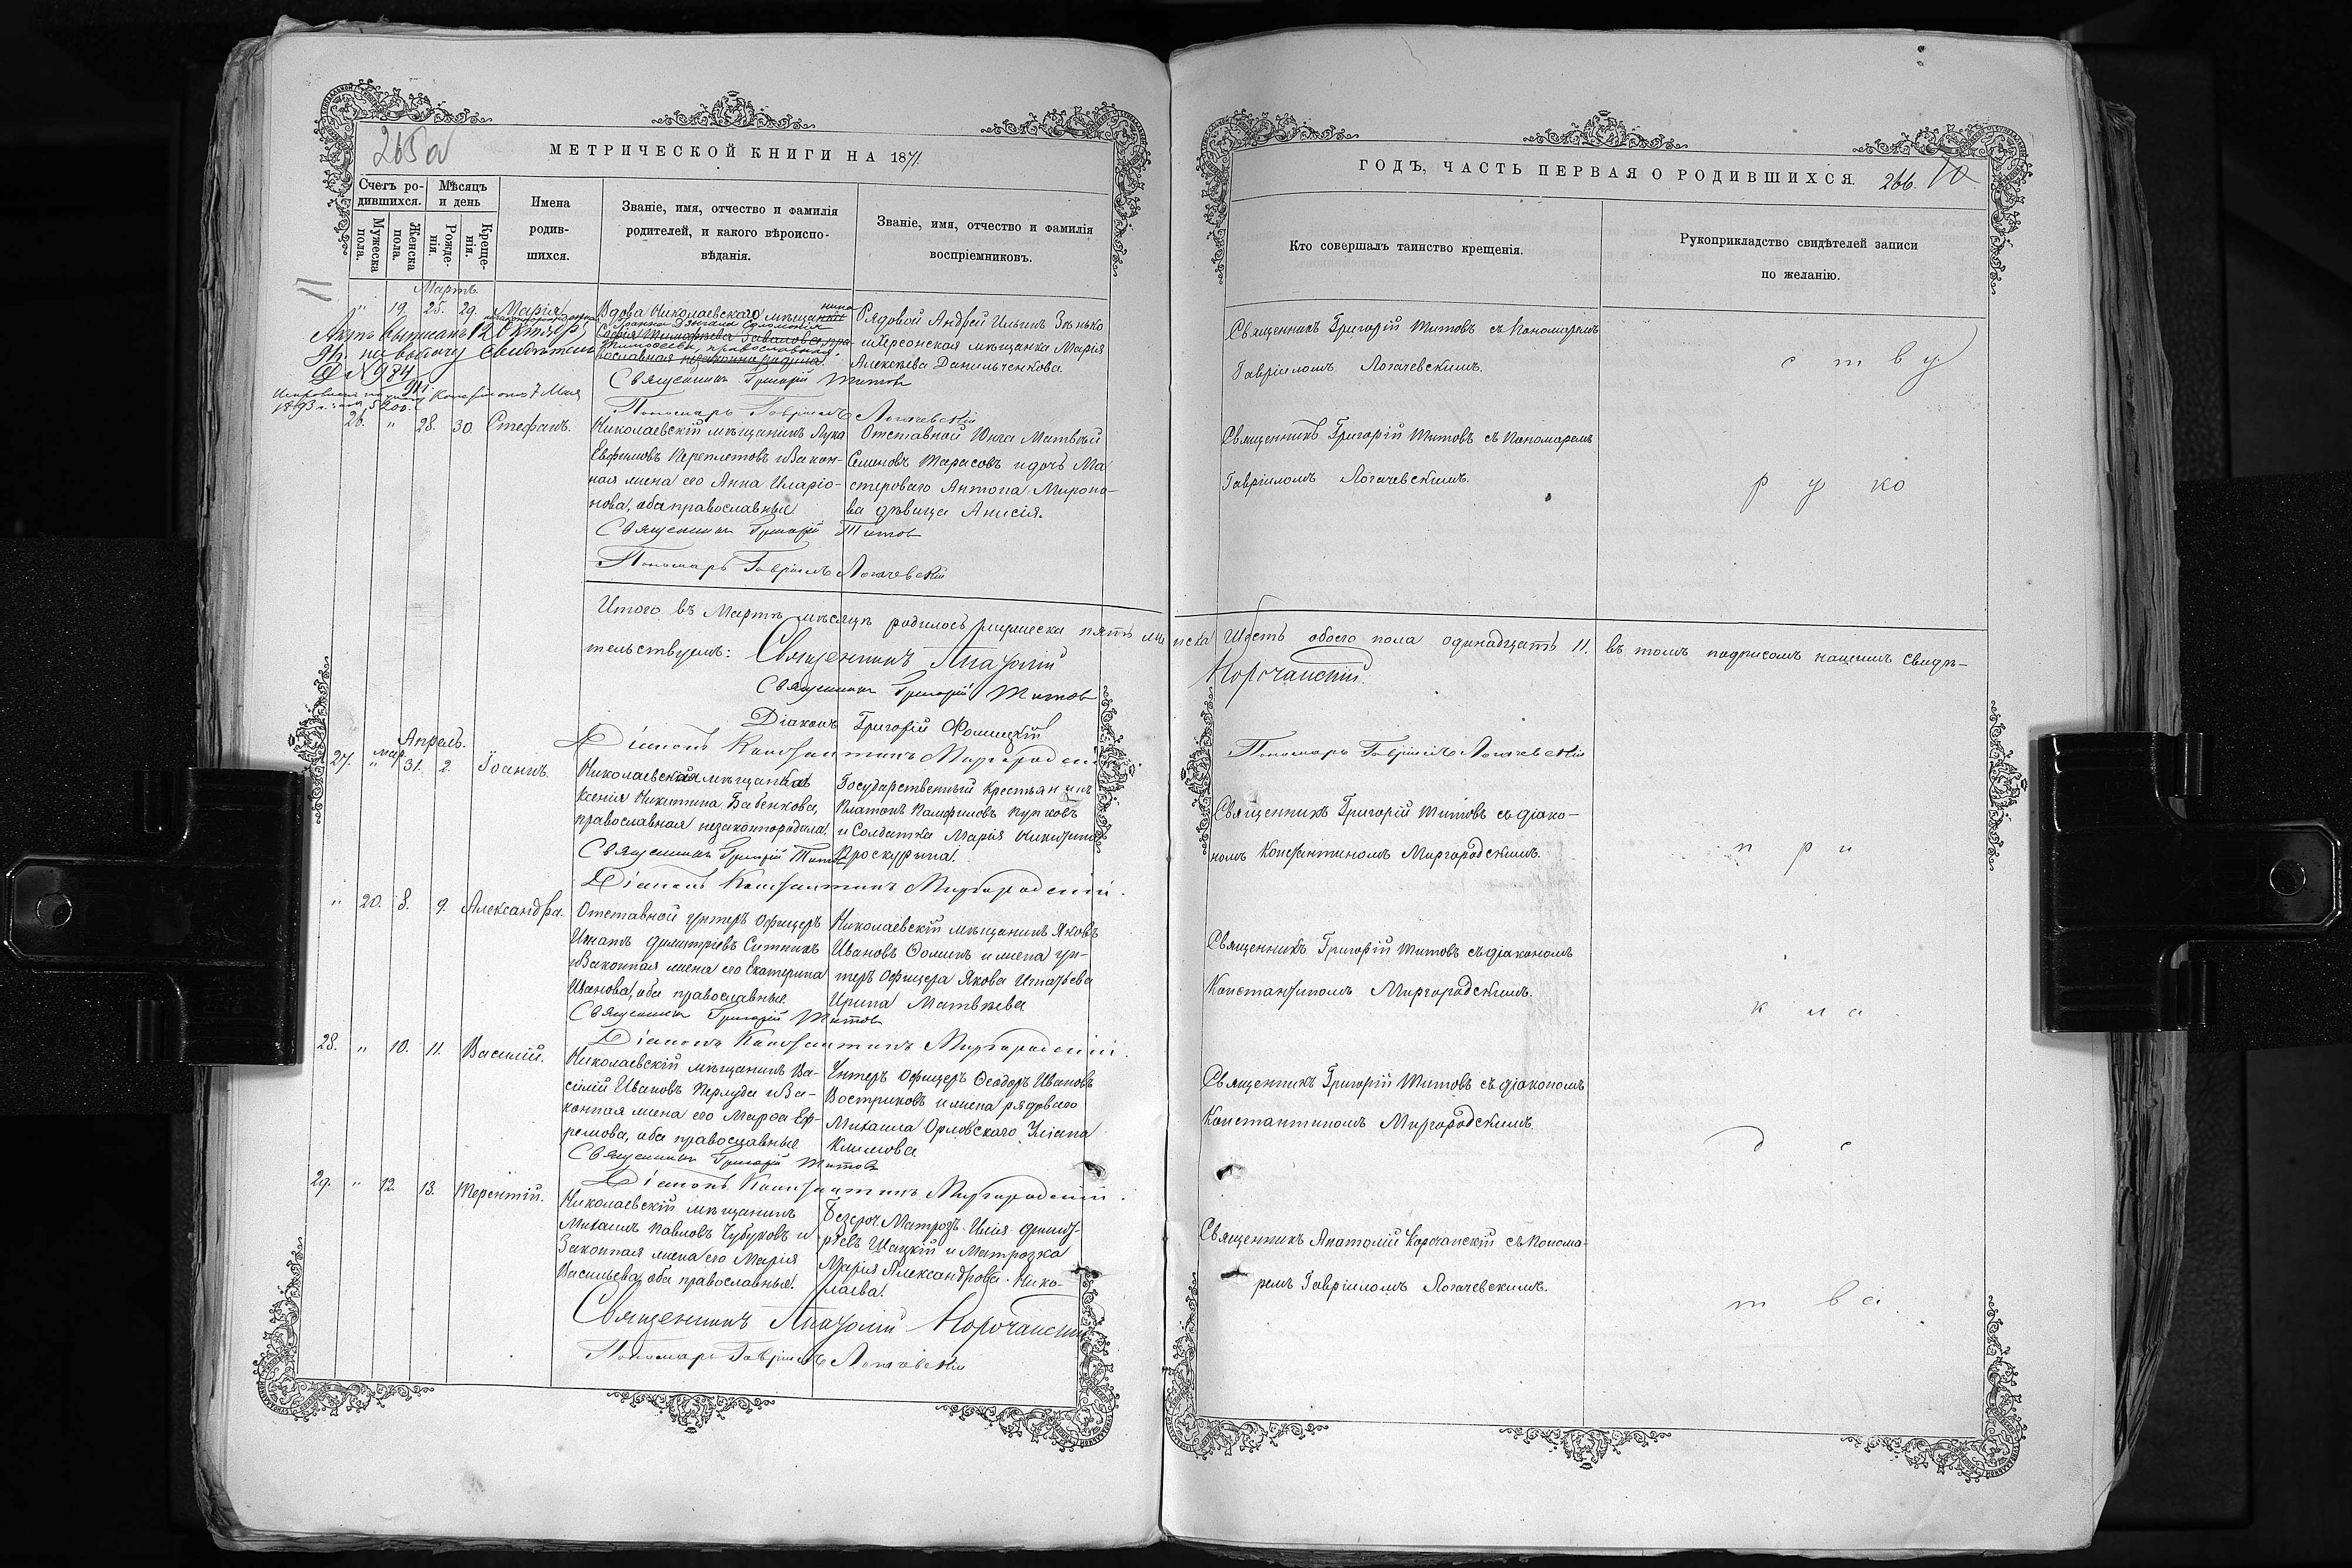 265 об
МЕТРИЧЕСКОЙ КНИГИ НА 1871.
Счетъ родившихся.
Мужеска пола.
Женска пола.
Мѣсяцъ и день
Рожденія.
Крещенія.
Имена родившихся.
Званіе, имя, отчество и фамилія родителей, и какого вѣроисповѣданія.
Званіе, имя, отчество и фамилія воспріемниковъ.
Мартъ
" 19. 25. 29. Марія
Вдова Николаевскаго мѣщанина
православная
Рядовой Андрей Ильинъ Зѣнько
и Херсонская мѣщанка Марія
Алексѣева Данильченкова
Священникъ Григорій Титовъ
Пономарь Гавріилъ Логачевскій
Актъ выписанъ 12 Октября
№ 984
26. " 28. 30. Стефанъ.
Николаевскій мѣщанинъ Лука
Евфимовъ Переплетовъ и закон-
ная жена его Анна Иларіо-
нова, оба православные
Отставной Юнга Матвѣй
Семеновъ Тарасовъ и дочь Ма
стероваго Антона Мироно-
ва дѣвица Анисія.
Священникъ Григорій Титовъ
Пономарь Гавріилъ Логачевскій
Итого въ Мартѣ мѣсяцѣ родилось мужеска пять женска
тельствуемъ: Священникъ Анатолій
Священникъ Григорій Титовъ
Діаконъ Григорій Фомицкій
Діаконъ Константинъ Миргородскій
Апрель.
27. " мар 31. 2. Іоаннъ.
Николаевская мѣщанка
Ксенія Никитина Бабенкова,
православная незаконнородила
Государственный Крестьянинъ
Платонъ Памфиловъ Пупковъ
и Солдатка Марія Никитина
Проскурина.
Священникъ Григорій Титовъ
Діаконъ Константинъ Миргородскій.
" 20. 8. 9. Александра.
Отставной унтеръ Офицеръ
Игнатъ Димитріевъ Ситникъ
и Законная жена его Екатерина
Иванова, оба православные
Николаевскій мѣщанинъ Яковъ
Ивановъ Фоминъ и жена ун-
теръ Офицера Якова Игнатьева
Ирина Матвѣева
Священникъ Григорій Титовъ
Діаконъ Константинъ Миргородскій.
28. " 10. 11. Василій.
Николаевскій мѣщанинъ Ва-
силій Ивановъ Перлуба и За-
конная жена его Марѳа Еф-
ремова, оба православные
Унтеръ Офицеръ Ѳеодоръ Ивановъ
Востриковъ и жена рядоваго
Михаила Орловскаго Уліана
Климова
Священникъ Григорій Титовъ
Діаконъ Константинъ Миргородскій.
29. " 12. 13. Терентій.
Николаевскій мѣщанинъ
Михаилъ Павловъ Чубуковъ и
Законная жена его Марія
Васильева, оба православные.
Безсроч. Матрозъ Илія Димит-
ріевъ Шацкій и Матрозка
Марія Александрова Нико-
лаева.
Священникъ Анатолій Корочанскій
Пономарь Гавріилъ Логачевскій
ГОДЪ, ЧАСТЬ ПЕРВАЯ О РОДИВШИХСЯ. 266. 10
Кто совершалъ таинство крещенія.
Рукоприкладство свидѣтелей записи по желанію.
Священникъ Григорій Титовъ съ Пономаремъ
Гавріиломъ Логачевскимъ.
с т в у
Священникъ Григорій Титовъ съ Пономаремъ
Гавріиломъ Логачевскимъ.
р у ко
шесть обоего пола одинадцать 11. въ томъ подписомъ нашимъ свидѣ-
Корочанскій.
Пономарь Гавріилъ Логачевскій
Священникъ Григорій Титовъ съ діако-
номъ Константиномъ Миргородскимъ.
п р и
Священникъ Григорій Титовъ съ діакономъ
Константиномъ Миргородскимъ.
к ла
Священникъ Григорій Титовъ съ діакономъ
Константиномъ Миргородскимъ
д с
Священникъ Анатолій Корочанскій съ Понома-
ремъ Гавріиломъ Логачевскимъ.
т ва.